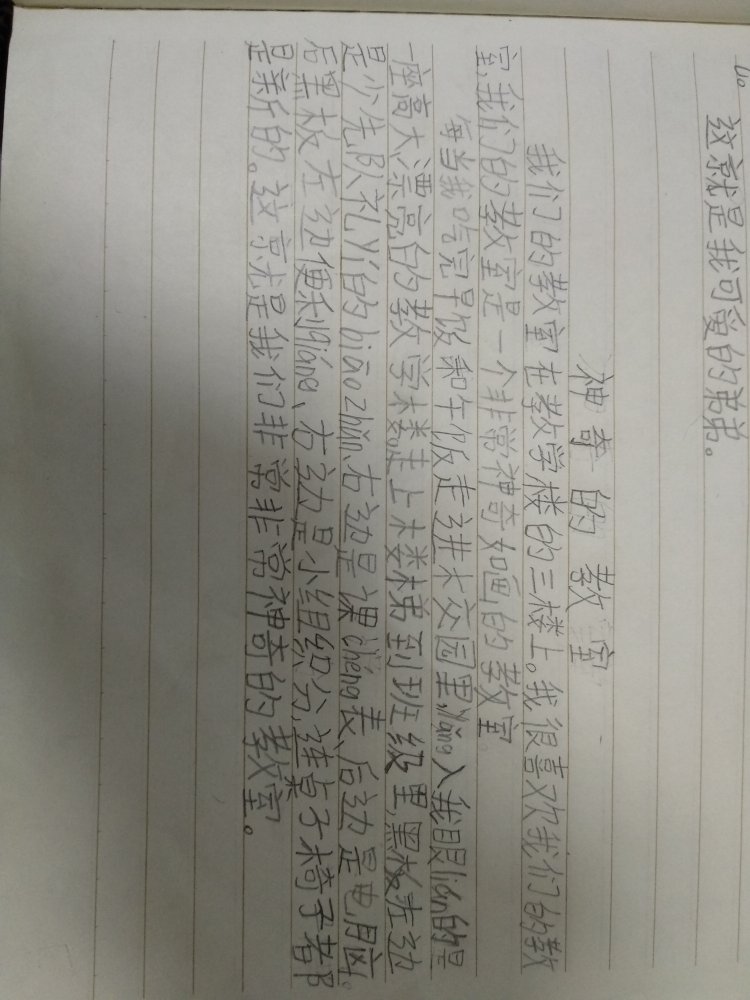 这就是我可爱的弟弟。
神奇的教室
我们的教室在教学楼的三楼上。我很喜欢我们的教
室,我们的教室是一个非常神奇如画的教室
每当我吃完早饭和午饭走进木交园里,yìng入我眼lián的是
一座高大漂亮的教学楼走上楼梯到班级里,黑板左边
是少先队礼义的biāo zhǔn、右边是课chéng表、后边是电脑、
后黑板左边便利qiáng、右边是小组积分,连桌子椅子都
是新的。这就是我们非常非常神奇的教室。